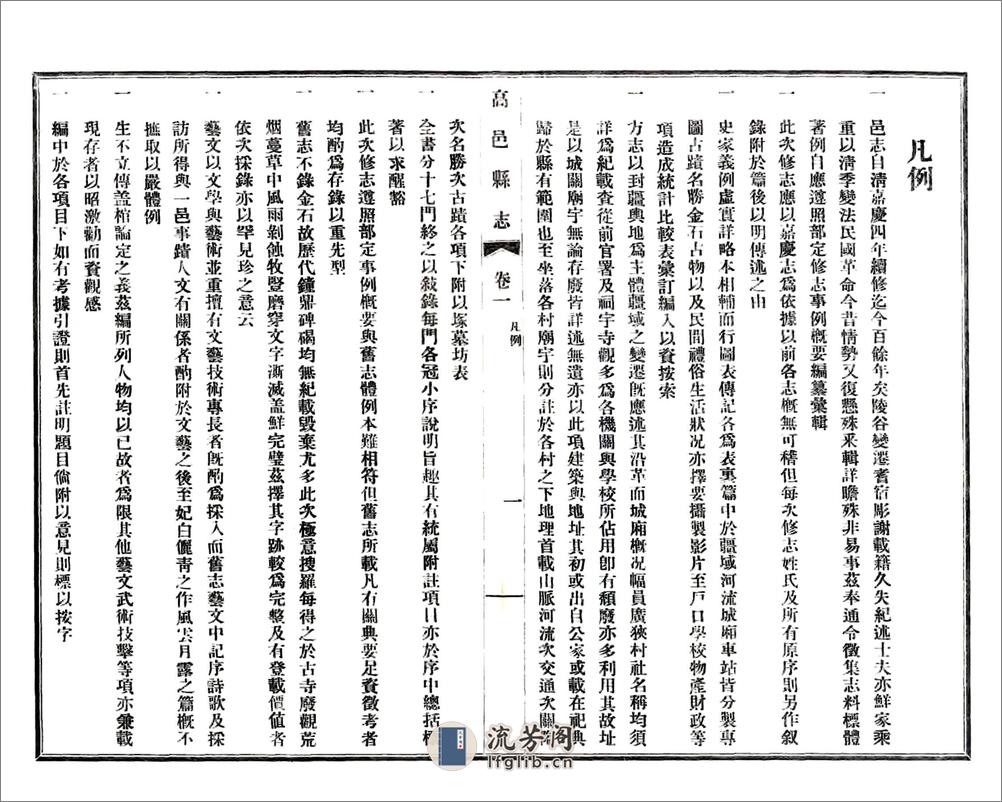 凡例
一 邑志自淸嘉慶四年續修迄今百餘年矣陵谷變遷耆宿彫謝載籍久失紀述士夫亦鮮家乘
重以淸季變法民國革命今昔情勢又復懸殊釆輯詳瞻殊非易事茲奉通令徵集志料標體
著例自應遵照部定修志事例槪要編纂彙輯
一 此次修志應以嘉慶志爲依據以前各志槪無可稽但每次修志姓氏及所有原序則另作叙
錄附於篇後以明傳述之由
一 史家義例虛實詳略本相輔而行圖表傳記各爲表裏篇中於疆域河流城廂車站皆分製專
圖古蹟名勝金石古物以及民間禮俗生活狀况亦擇要攝製影片至戶口學校物產財政等
項造成統計比較表彙訂編入以資按索
一 方志以封疆輿地爲主體疆域之變遷旣應述其沿革而城廂槪况幅員廣狹村社名稱均須
詳爲紀載查從前官署及祠宇寺觀多爲各機關與學校所佔用卽有頹廢亦多利用其故址
是以城關廟宇無論存廢皆詳述無遺亦以此項建築與地址其初或出自公家或載在祀典
歸於縣有範圍也至坐落各村廟宇則分註於各村之下地理首載山脈河流次交通次關
高邑縣志 卷一 凡例 一
次名勝次古蹟各項下附以塚墓坊表
一 全書分十七門終之以敍錄每門各冠小序說明旨趣其有統屬附註項目亦於序中總括
著以求醒豁
一 此次修志遵照部定事例概要與舊志體例本難相符但舊志所載凡有關典要足資徵考者
均酌爲存錄以重先型
一 舊志不錄金石故歷代鐘鼎碑碣均無紀載毀棄尤多此次極意搜羅每得之於古寺廢觀荒
烟蔓草中風雨剝蝕牧豎磨穿文字漸滅盖鮮完璧茲擇其字跡較爲完整及有登載價値者
依次採錄亦以罕見珍之意云
一 藝文以文學與藝術並重擅有文藝技術專長者旣酌爲採入而舊志藝文中記序詩歌及採
訪所得與一邑事蹟人文有關係者酌附於文藝之後至妃白儷靑之作風雲月露之篇槪不
摭取以嚴體例
一 生不立傳盖棺論定之義茲編所列人物均以已故者爲限其他藝文武術技擊等項亦兼載
現存者以昭激勸而資觀感
一 編中於各項目下如有考據引證則首先註明題目倘附以意見則標以按字
流芳阁
lfglib.cn